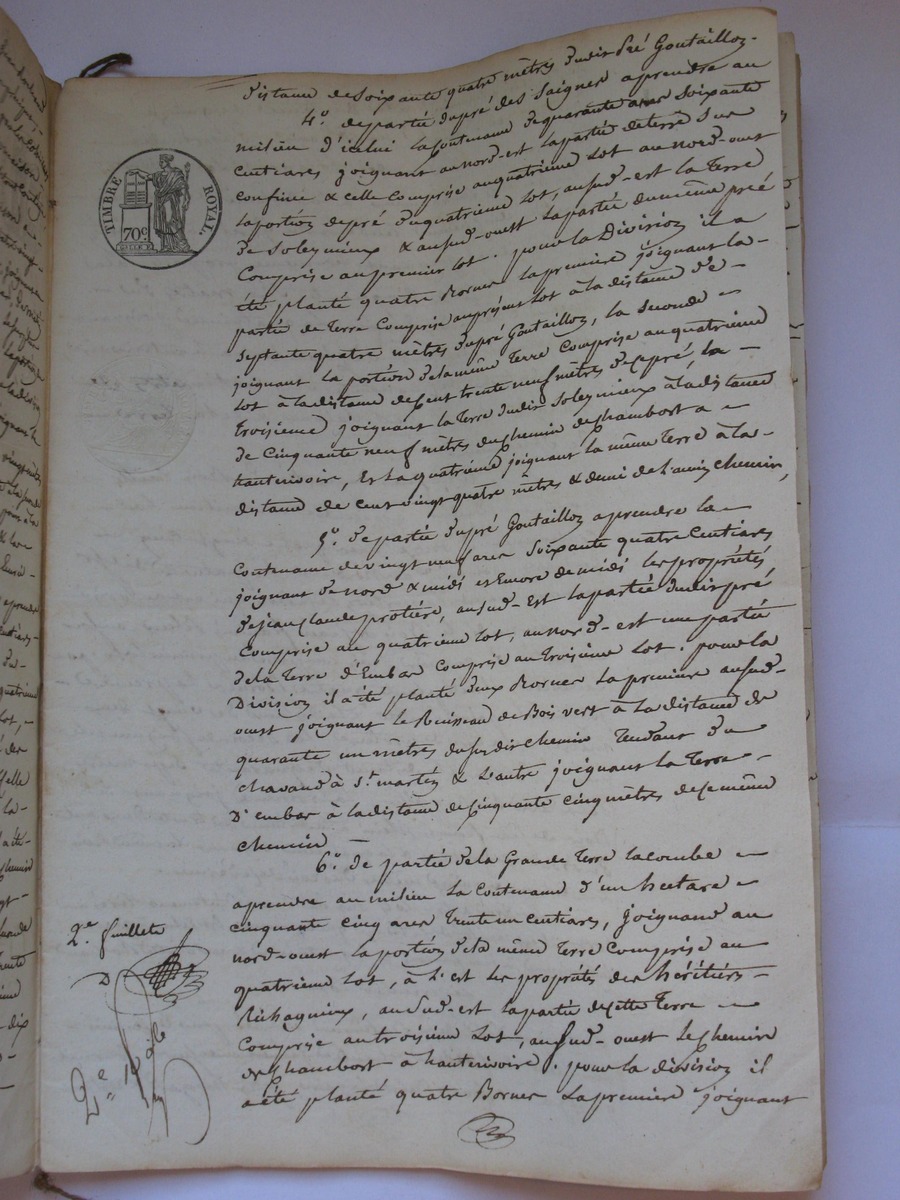 distance de soixante quatre mètres dudit Pré Goutailloz.
4.° de partie du pré des Saignes aprendre au
milieu d'icelui la Contenance de quarante ares Soixante
Centiares joignant au nord-est la partie de terre Sus
confinée & celle Comprise au quatrieme Lot au nord-ouest
la portion de pré du quatrieme Lot, au Sud-est la Terre
de Soleymieux & au Sud-ouest la partie du même pré
Comprise au premier Lot. pour la Division il a
été planté quatre Bornes la premiere joignant la-
partie de Terre Comprise au présent Lot à la distance de-
septante quatre mètres du pré Goutailloz, la Seconde-
joignant la portion de la même Terre Comprise au quatrieme
Lot à la distance de Cent trente neuf mètres de Ce pré, la
Troisieme joignant la Terre dudit Soleymieux à la distance
de Cinquante neuf mètres du Chemin de Chambort a-
hauterivoire, Et la quatrieme joignant la même Terre à la-
distance de Cent vingt quatre mètres & demi de l'avis Chemin,
5.° de partie du pré Goutailloz a prendre la-
Contenance de vingt neuf ares Soixante quatre Centiares
joignant de nord & midi et Encore de midi les propriétés
de jean Claude protiere, au Sud-Est la partie dudit pré
Comprise au quatrieme Lot, au nord-est une partie
de la Terre d'Embas Comprise au troisieme Lot. pour la
Division il a été planté deux Bornes la premiere au Sud-
ouest joignant le Ruisseau de Bois vert à la distance de
quarante un mètres du susdit Chemin Tendant de
chavané à S.t martin & L'autre joignant la Terre-
D'embas à la distance de Cinquante Cinq mètres de Ce même
Chemin-
6.° de partie de la Grande Terre Lacombe-
aprendre au milieu la Contenance d'un hectare-
Cinquante Cinq ares Trente un Centiares, joignant au
nord-ouest la portion de la même Terre Comprise au
quatrieme Lot, à l'est les propriétés des héritiers-
au Sud-est la partie de cette Terre-
Comprise au troisieme Lot, au Sud-ouest le Chemin
de Chambort à hauterivoire. pour la division il
a été planté quatre Bornes La premiere joignant
TIMBRE ROYAL.
70c
2.e feuillet
2.e